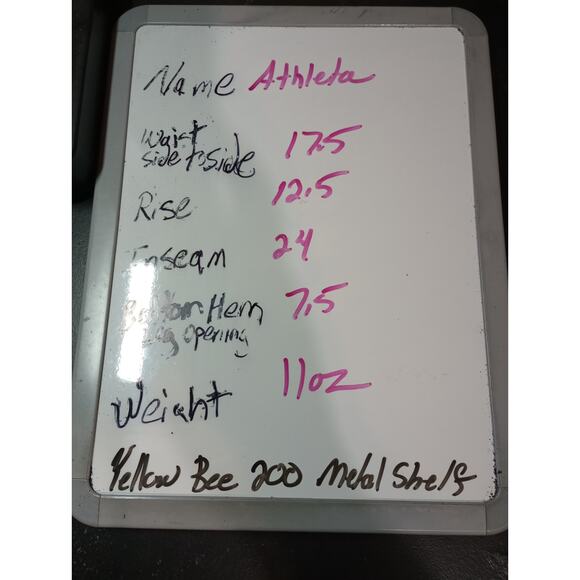 Name Athleta
Waist
side to side 17.5
Rise 12.5
Inseam 24
Bottom Hem 7.5
Leg opening
Weight 11oz
Yellow Bee 200 Metal Shelf